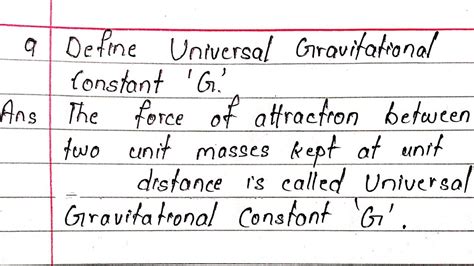 q Define Universal Gravitational
Constant 'G'.
Ans The force of attraction between
two unit masses kept at unit
distance is called Universal
Gravitational Constant 'G'.